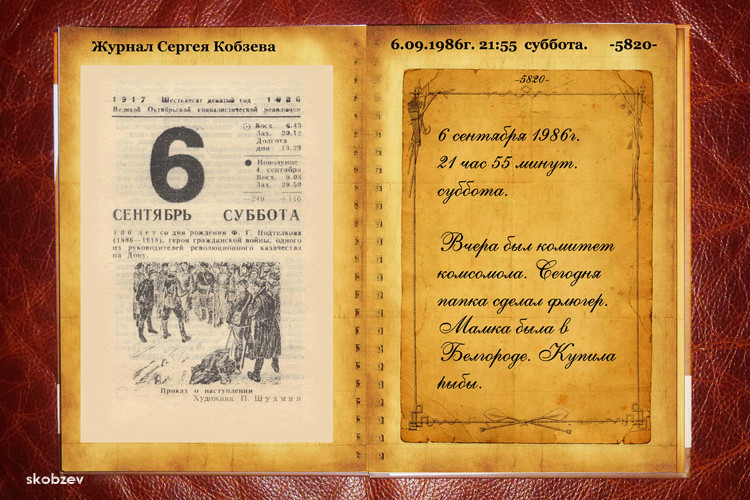 Журнал Сергея Кобзева
1917 Шестьдесят девятый год 1986
Великой Октябрьской социалистической революции
6
Восх. 6.43
Зах. 20.12
Долгота
дня 13.29
Новолуние
4 сентября
Восх. 9.08
Зах. 20.50
249 +116
СЕНТЯБРЬ СУББОТА
100 лет со дня рождения Ф. Г. Подтелкова
(1886—1918), героя гражданской войны, одного
из руководителей революционного казачества
на Дону.
Приказ о наступлении
Художник П. Шухмин
6.09.1986г. 21:55 суббота. -5820-
-5820-
6 сентября 1986г.
21 час 55 минут.
суббота.
Вчера был комитет
комсомола. Сегодня
папка сделал флюгер.
Мамка была в
Белгороде. Купила
рыбы.
skobzev